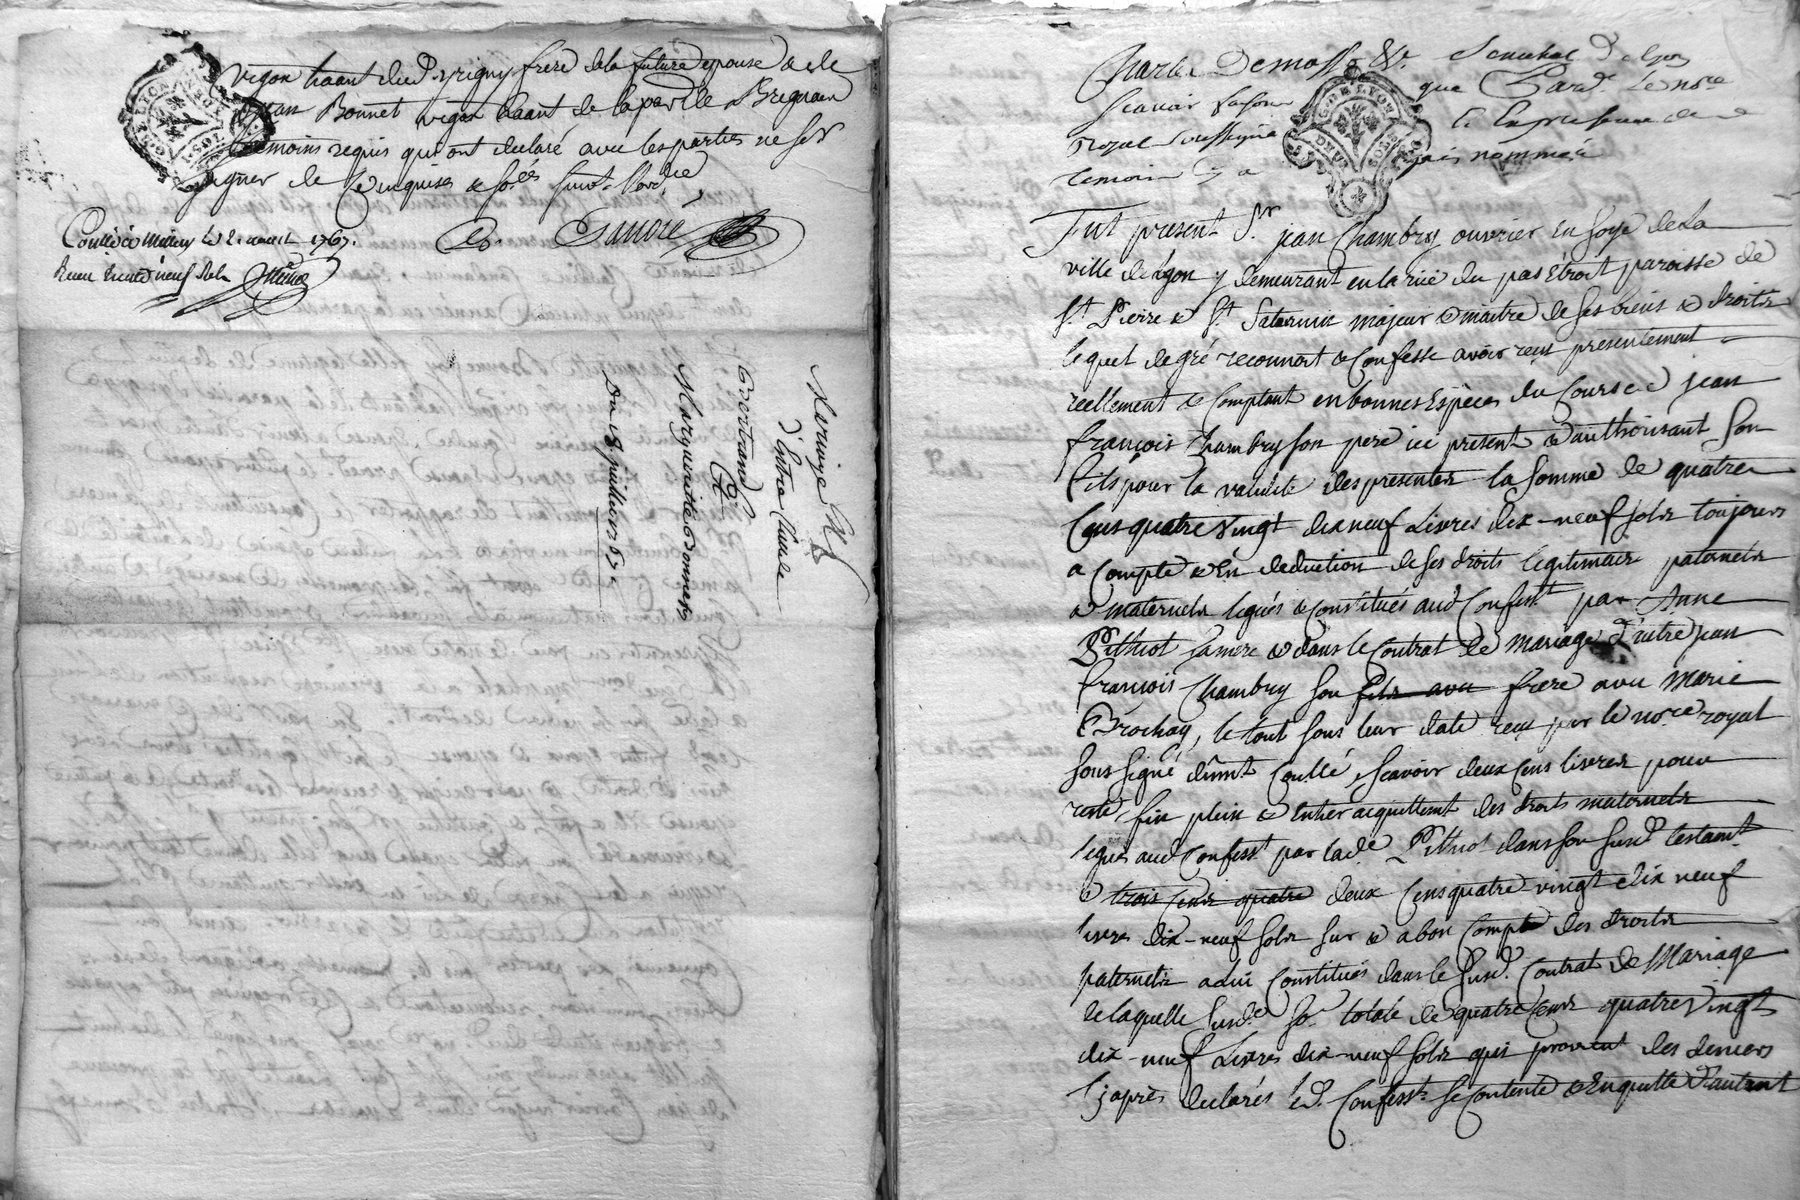 vigon haant dud. yrigny frere de la future epouse & de
jean Bonnet vigon haant de la parr. de Brignais
temoins requis qui ont declaré avec les parties ne sçv
signer de ce enquis & so.és suivt. l'ord.ce
Coullé à Millery le 2 1767.
Reçu trente neuf sols
Mariage
d'Entre Claude
Gr
Marguerite Bonnet
Du 19 juillet 1767
Charle Demasso &c. Senechal de Lyon
scavoir faisons que Pard. le no.re
Royal soussigné & en presence des
temoins cy a pres nommés
Fut present Sr. jean Chambry ouvrier en soye de la
ville de Lyon y demeurant en la rue du pas Etroit paroisse de
St. Pierre & St. Saturnin majeur & maitre de ses biens & droits
lequel de gré reconnoit & confesse avoir reçu presentement
reellement & comptant en bonnes Espèces du Cours de jean
françois Chambry son pere ici present & authorisant son
fils pour la validité des presentes la somme de quatre
Cens quatre vingt dix neuf Livres dix-neuf sols toujours
a compte & En deduction de ses droits legitimaires paternels
& maternels legués & constitués aud. Confesst. par Anne
Pithiot sa mere & dans le Contrat de mariage d'autre jean
françois Chambry son fils avec frere avec Marie
Brochay, le tout sous leur date reçu par le no.re royal
sous signé dûmt Coullé, scavoir deux cens livres pour
reste, fin plein & entier acquittemt des droits maternels
legués aud. Confesst. par lad.e Pithiot dans son susd. testamt.
& trois cens quatre deux Cens quatre vingt dix neuf
livres dix-neuf sols sur & a bon compte des droits
paternels a lui constitués dans le susd. Contrat de Mariage
de laquelle susd.e so.e totale de quatre Cens quatre vingt
dix-neuf Livres dix-neuf sols qui provient des deniers
cy après declarés led. Confesst. se contente & En quitte d'autant